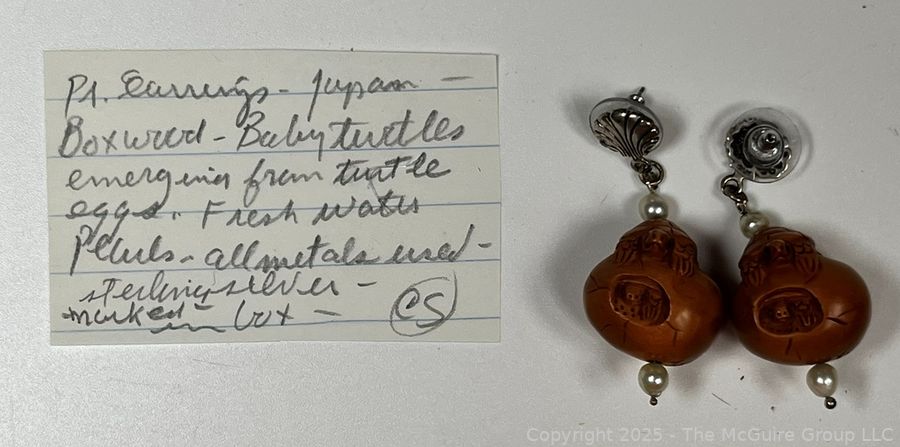 Pr. Earrings - Japan -
Boxwood - Baby turtles
emerging from turtle
eggs. Fresh water
Pearls - all metals used -
sterling silver -
marked in box - CS
Copyright 2025 - The McGuire Group LLC